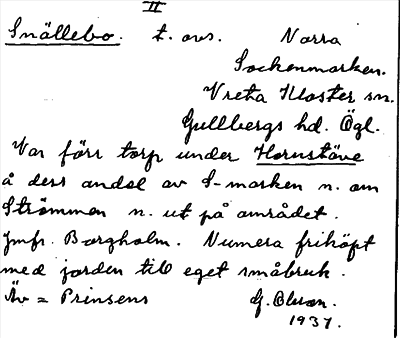 II
Snällebo. t. avs. Norra
Sockenmarken.
Vreta Kloster sn.
Gullbergs hd. Ögl.
Var förr torp under Hornstäve
å dess andel av S-marken n. om
Strömmen n. ut på området.
Jmfr. Borgholm. Numera friköpt
med jorden till eget småbruk.
Äv = Prinsens G. Olsson.
1937.